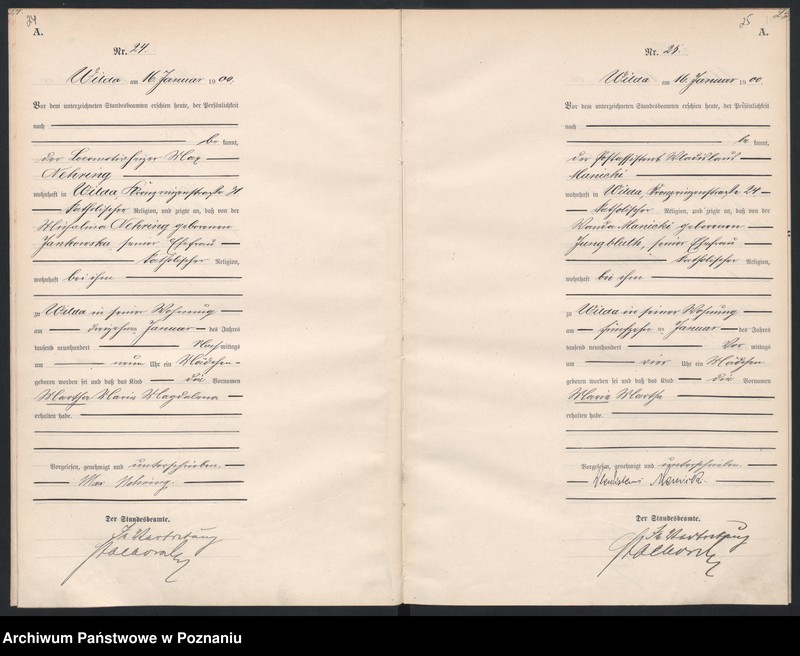 24
A.
Nr. 24.
Wilda am 16 Januar 1900.
Vor dem unterzeichneten Standesbeamten erschien heute, der Persönlichkeit
nach
be kannt,
der Locomotivheizer Max
Nehring
wohnhaft in Wilda Kronprinzenstraße
katholischer Religion, und zeigte an, daß von der
Nehring geborenen
Jankowska, seiner Ehefrau
katholischer Religion,
wohnhaft bei ihm
zu Wilda in seiner Wohnung
am dreizehnten Januar des Jahres
tausend neunhundert Nach mittags
um neun Uhr ein Mädchen
geboren worden sei und daß das Kind die Vornamen
Martha Maria Magdalena
erhalten habe.
Vorgelesen, genehmigt und unterschrieben.
Max Nehring.
Der Standesbeamte.
In Vertretung
25
A.
Nr. 25.
Wilda am 16 Januar 1900.
Vor dem unterzeichneten Standesbeamten erschien heute, der Persönlichkeit
nach
be kannt,
der Postassistent Wladislaus
Manicki
wohnhaft in Wilda, Kronprinzenstraße 24
katholischer Religion, und zeigte an, daß von der
Wanda Manicki geborenen
Jungbluth, seiner Ehefrau
katholischer Religion,
wohnhaft bei ihm
zu Wilda in seiner Wohnung
am fünfzehn ten Januar des Jahres
tausend neunhundert Vor mittags
um vier Uhr ein Mädchen
geboren worden sei und daß das Kind die Vornamen
Maria Martha
erhalten habe.
Vorgelesen, genehmigt und unterschrieben.
Der Standesbeamte.
In Vertretung
Archiwum Państwowe w Poznaniu